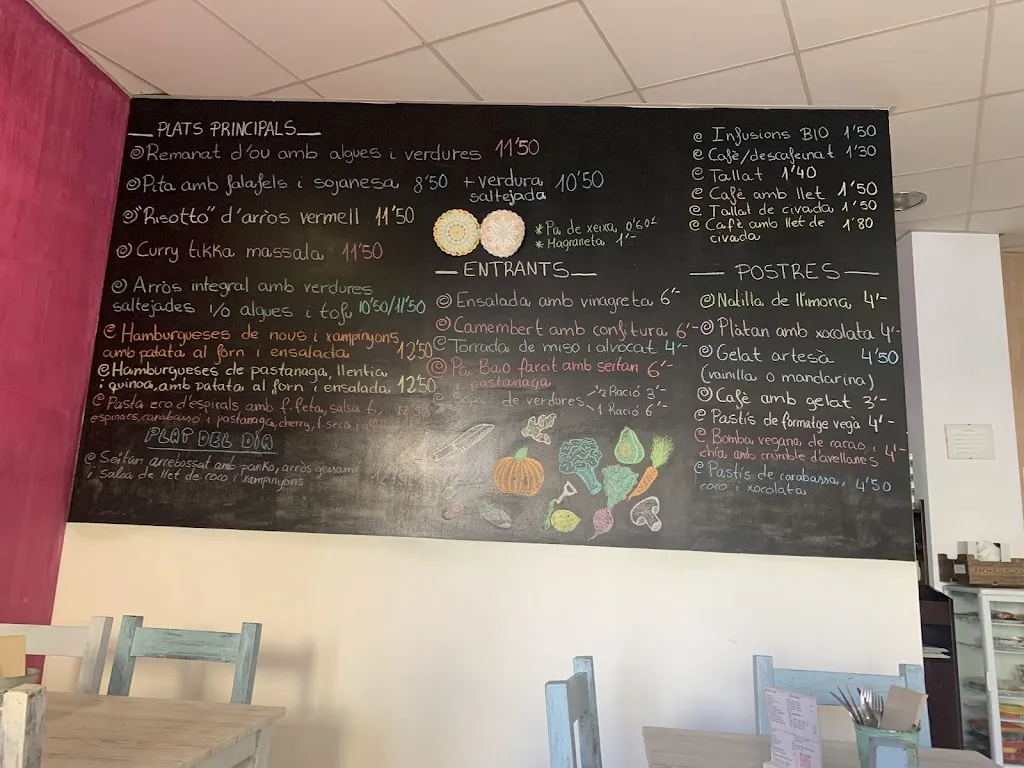 PLATS PRINCIPALS
Remanat d'ou amb algues i verdures 11'50
Pita amb falafels i sojanesa 8'50 + verdura saltejada 10'50
"Risotto" d'arròs vermell 11'50
Curry tikka massala 11'50
Arròs integral amb verdures
saltejades i/o algues i tofu 10'50/11'50
Hamburgueses de nous i xampinyons,
amb patata al forn i ensalada 12'50
Hamburgueses de pastanaga, llentia
i quinoa, amb patata al forn i ensalada 12'50
Pasta eco d'espirals amb f. feta, salsa t.,
espinacs, carabassó i pastanaga, cherry, f. seca i
PLAT DEL DIA
Seitan arrebossat amb panko, arròs
i salsa de llet de coco i xampinyons
* Pa de xeixa, 0'60
* Magraneta 1'-
ENTRANTS
Ensalada amb vinagreta 6'-
Camembert amb confitura 6'-
Torrada de miso i alvocat 4'-
Pa Bao farcit amb seitan 6'-
i pastanaga
Sopa de verdures 1/2 Ració 3'-
1 Ració 6'-
Infusions BIO 1'50
Cafè/descafeinat 1'30
Tallat 1'40
Cafè amb llet 1'50
Tallat de civada 1'50
Cafè amb llet de
civada 1'80
POSTRES
Natilla de llimona, 4'-
Plàtan amb xocolata 4'-
Gelat artesà 4'50
(vainilla o mandarina)
Cafè amb gelat 3'-
Pastís de formatge vegà 4'-
Bomba vegana de cacao i
chía amb crumble d'avellanes 4'-
Pastís de carabassa,
coco i xocolata 4'50